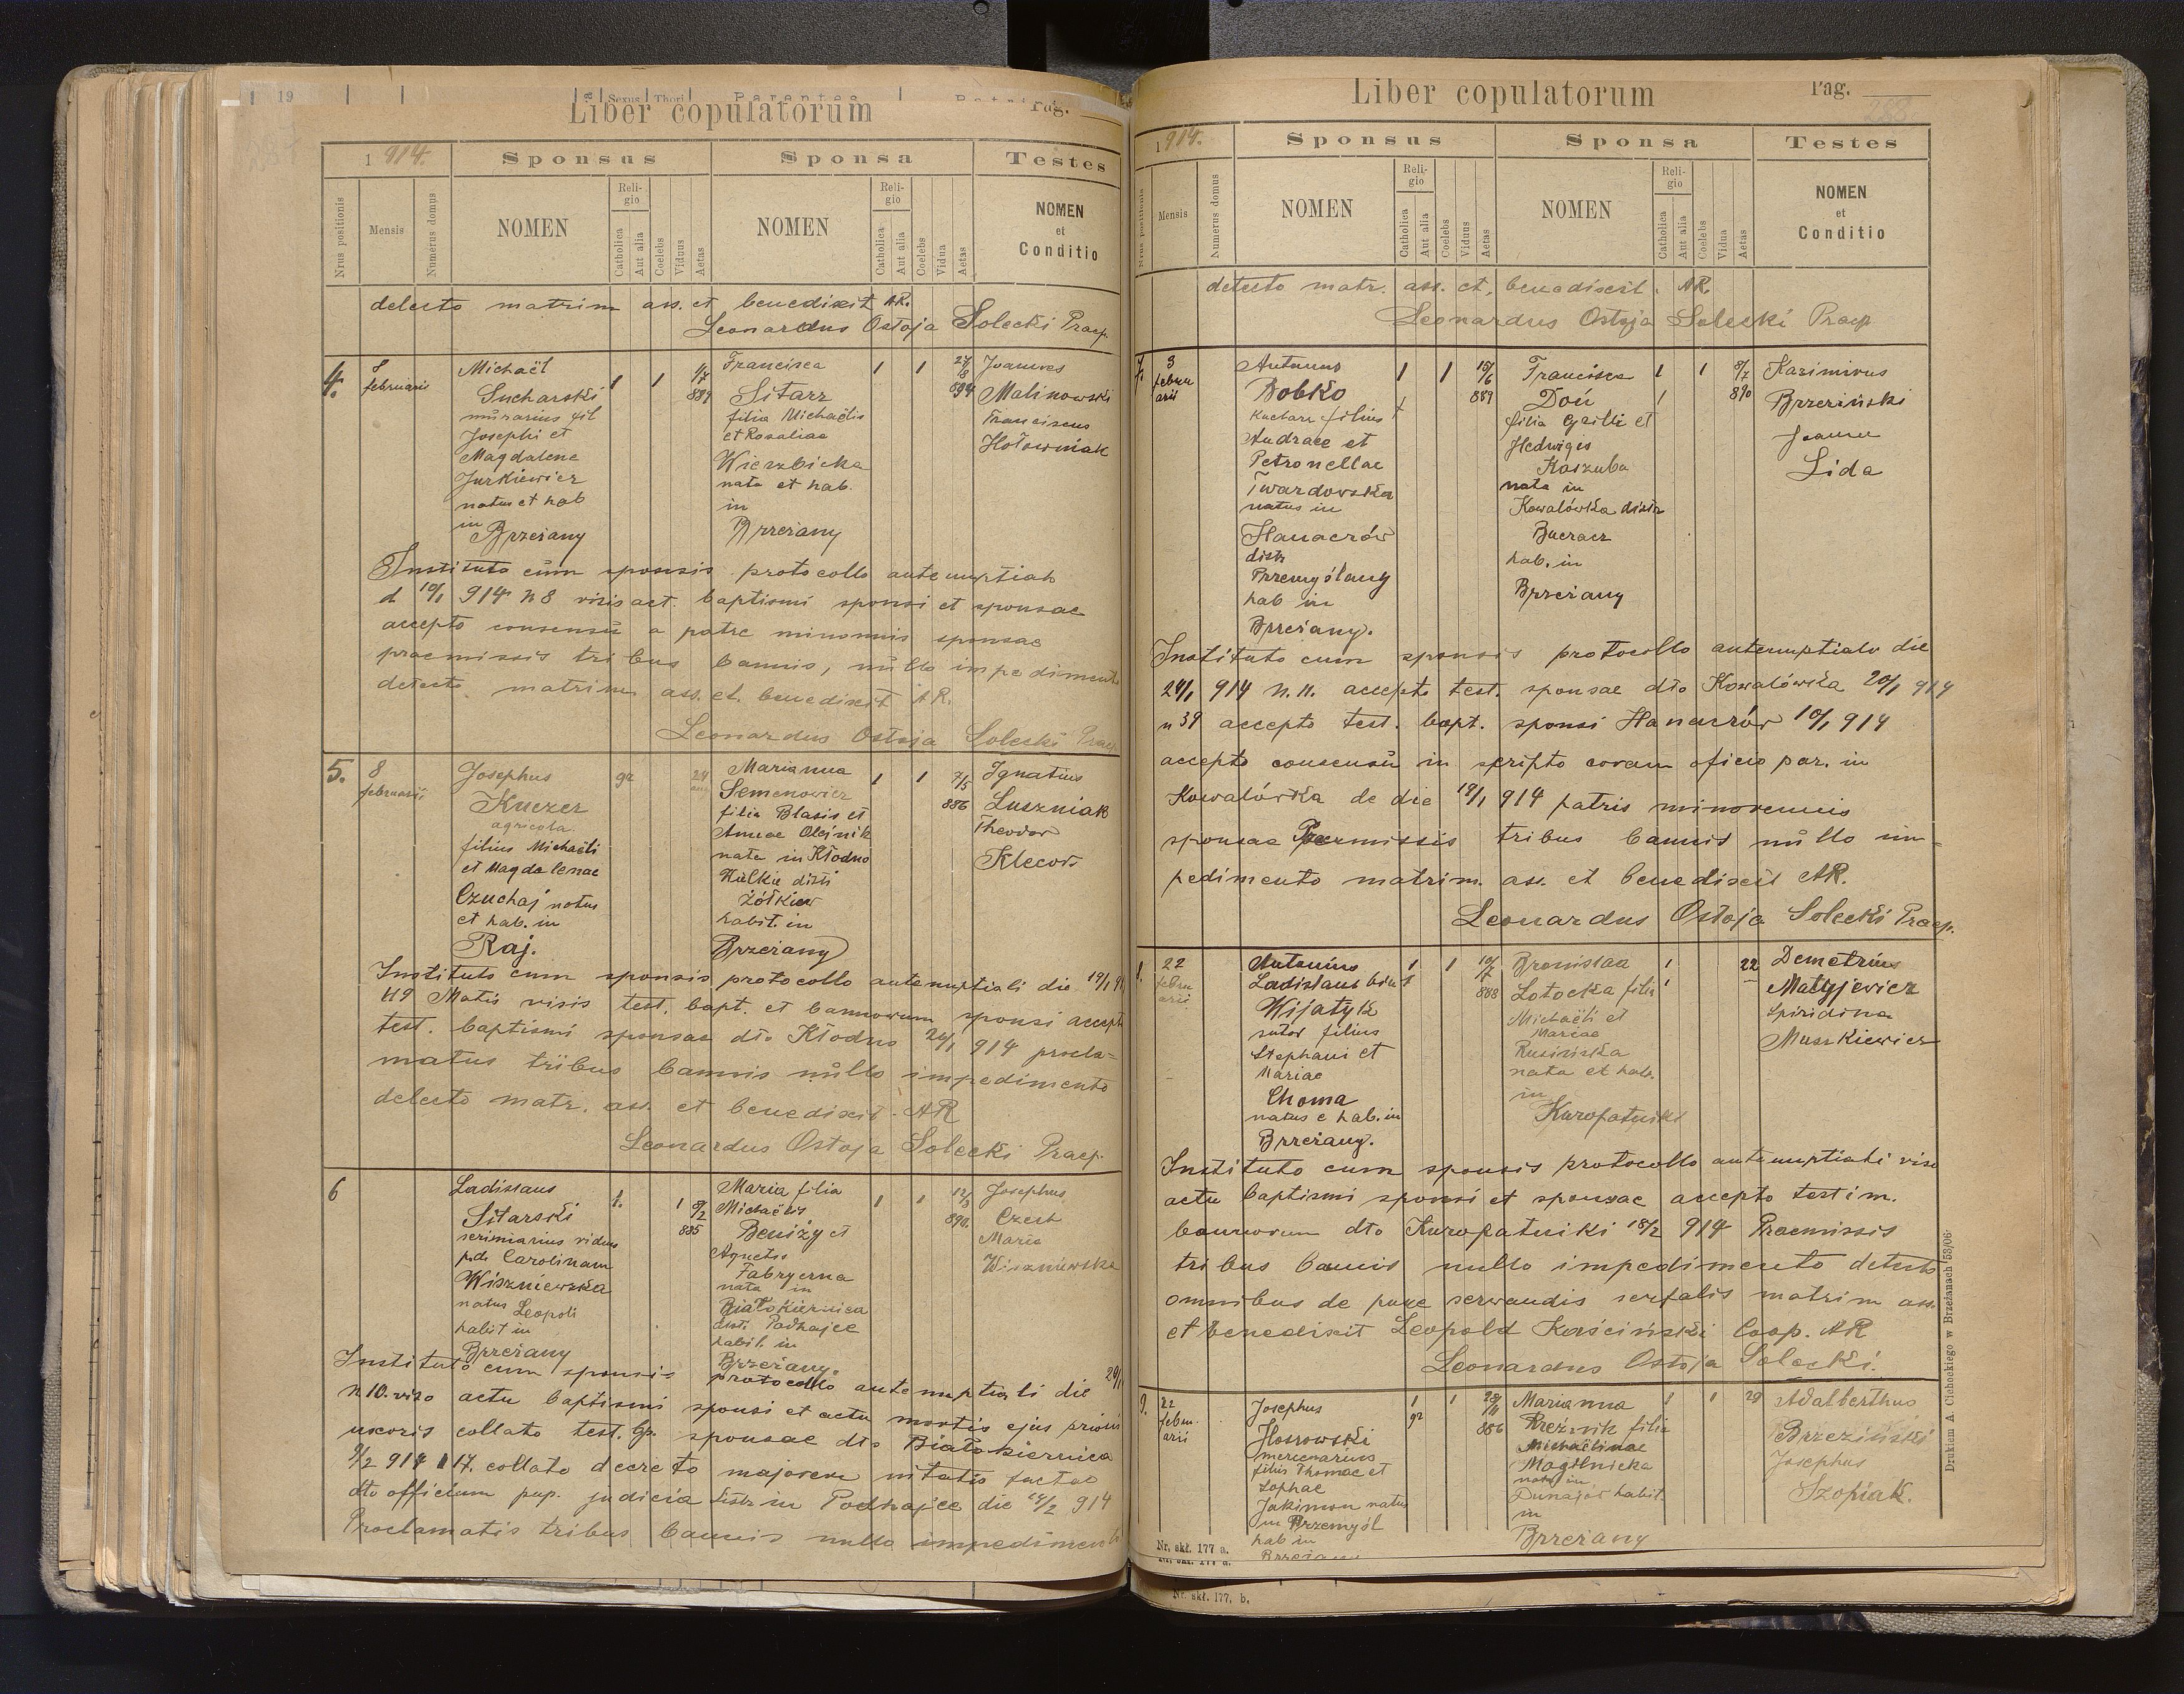 Liber copulatorum
Pag.
1914.
Sponsus
Sponsa
Testes
Nrus positionis
Mensis
Numerus domus
NOMEN
Religio
Catholica
Aut alia
Coelebs
Viduus
Aetas
NOMEN
Religio
Catholica
Aut alia
Coelebs
Vidua
Aetas
NOMEN
et
Conditio
detecto matrim ass. et benedixit AR.
Leonardus Ostoja Solecki Praep.
4.
8
februarii
Michaël
Sucharski
murarius fil
Josephi et
Magdalene
Jurkiewicz
natus et hab
in
Brzeżany
1
1
1/7
889
Francisca
Sitarz
filia Michaëlis
et Rosaliae
Wierzbicka
nata et hab.
in
Brzeżany
1
1
894
Joannes
Malinowski
Franciscus
Hołowniak
Instituto cum sponsis protocollo antenuptiali
d 10/1 914 n 8 visis act. baptismi sponsi et sponsae
accepto consensu a patre minorennis sponsae
praemissis tribus bannis, nullo impedimento
detecto matrim ass. et. benedixit AR.
Leonardus Ostoja Solecki Praep
5.
8
februarii
Josephus
Kuczer
agricola
filius Michaëli
et Magdalenae
Czuchaj natus
et hab. in
Raj.
gr
24
Marianna
Semenowicz
filia Blasis et
Annae Olejnik
nata in Kłodno
distr
Żółkiew
habit. in
Brzeżany
1
1
7/5
886
Ignatius
Luszniak
Theodor
Instituto cum sponsis protocollo antenuptiali die 19/1
visis test. bapt. et bannorum sponsi accepto
test. baptismi sponsae dto Kłodno 20/1 914 procla=
matus tribus bannis nullo impedimento
detecto matr. ass. et benedixit. AR
Leonardus Ostoja Solecki Praep.
6
Ladislaus
Sitarski
viduus
p.d. Carolinam
Wiszniewska
natus Leopoli
habit in
Brzeżany
1.
1
8/2
885
Maria filia
Michaëlis
Beniży et
Agnetis
Fabryczna
nata in
Białokiernica
distr. Podhajce
habit. in
Brzeżany.
1
1
12/3
890.
Josephus
Czech
Maria
Wiszniewska
Instituto cum sponsis protocollo antenuptiali die
n 10. viso actu baptismi sponsi et actu mortis ejus prioris
uxoris collato test. bp. sponsae dto Białokiernica
9/2 914 17. collato decreto majorennitatis factae
dto officium pup. judicia distr in Podhajce die 914
Proclamatis tribus bannis nullo impedimento
Liber copulatorum
Pag.
288
1914.
Sponsus
Sponsa
Testes
Nrus positionis
Mensis
Numerus domus
NOMEN
Religio
Catholica
Aut alia
Coelebs
Viduus
Aetas
NOMEN
Religio
Catholica
Aut alia
Coelebs
Vidua
Aetas
NOMEN
et
Conditio
detecto matr. ass. et. benedixit. AR.
Leonardus Ostoja Solecki Praep
7.
3
februarii
Antonius
Bobko
filius
Andreae et
Petronellae
Twardovska
natus in
Hanaczów
distr
Przemyślany
hab in
Brzeżany.
1
1
15/6
889
Francisca
Doń
filia et
Hedwigis
Kaszuba
nata in
Kowalówka distr
Buczacz
hab. in
Brzeżany
1
1
8/7
890
Kazimirus
Brzeziński
Joannes
Lida
Instituto cum sponsis protocollo antenuptiali die
24/1 914 n. 11. accepto test. sponsae dto Kowalówka 20/1 914
n 39 accepto test. bapt. sponsi Hanaczów 10/1 914
accepto consensu in scripto coram oficio par. in
Kowalówka de die 19/1 914 patris minorennis
sponsae Praemissis tribus bannis nullo im=
pedimento matrim. ass. et benedixit AR.
Leonardus Ostoja Solecki Praep.
22
februarii
Antonius
Ladislaus
Wijatyk
sutor filius
Stephani et
Mariae
Choma
natus e hab. in
Brzeżany.
1
1
10/7
888
Bronislaa
Lotocka filia
Michaëli et
Mariae
Rusińska
nata et hab.
in
Kuropatniki
1
22
Demetrius
Matyjewicz
Spiridina
Muszkiewicz
Instituto cum sponsis protocollo antenuptiali viso
actu baptismi sponsi et sponsae accepto testim.
bannorum dto Kuropatniki 18/2 914 Praemissis
tribus bannis nullo impedimento detecto
omnibus de servandis matrim ass.
et benedixit Leopold Kościński Coop. AR
Leonardus Ostoja Solecki.
9.
22
februarii
Josephus
mercenarius
filius Thomae et
Sophae
Jakimow natus
in Przemyśl
hab in
Brzeżany
1
gr
1
28/11
886
Marianna
filia
Michaëlinae
Magilnicka
nata in
Dunajów habit.
in
Brzeżany
1
1
29
Adalberthus
Brzeziński
Josephus
Szopiak.
Nr. skł. 177 a.
Nr. skł. 177, b.
Drukiem A. Cichockiego w Brzeżanach 53/06